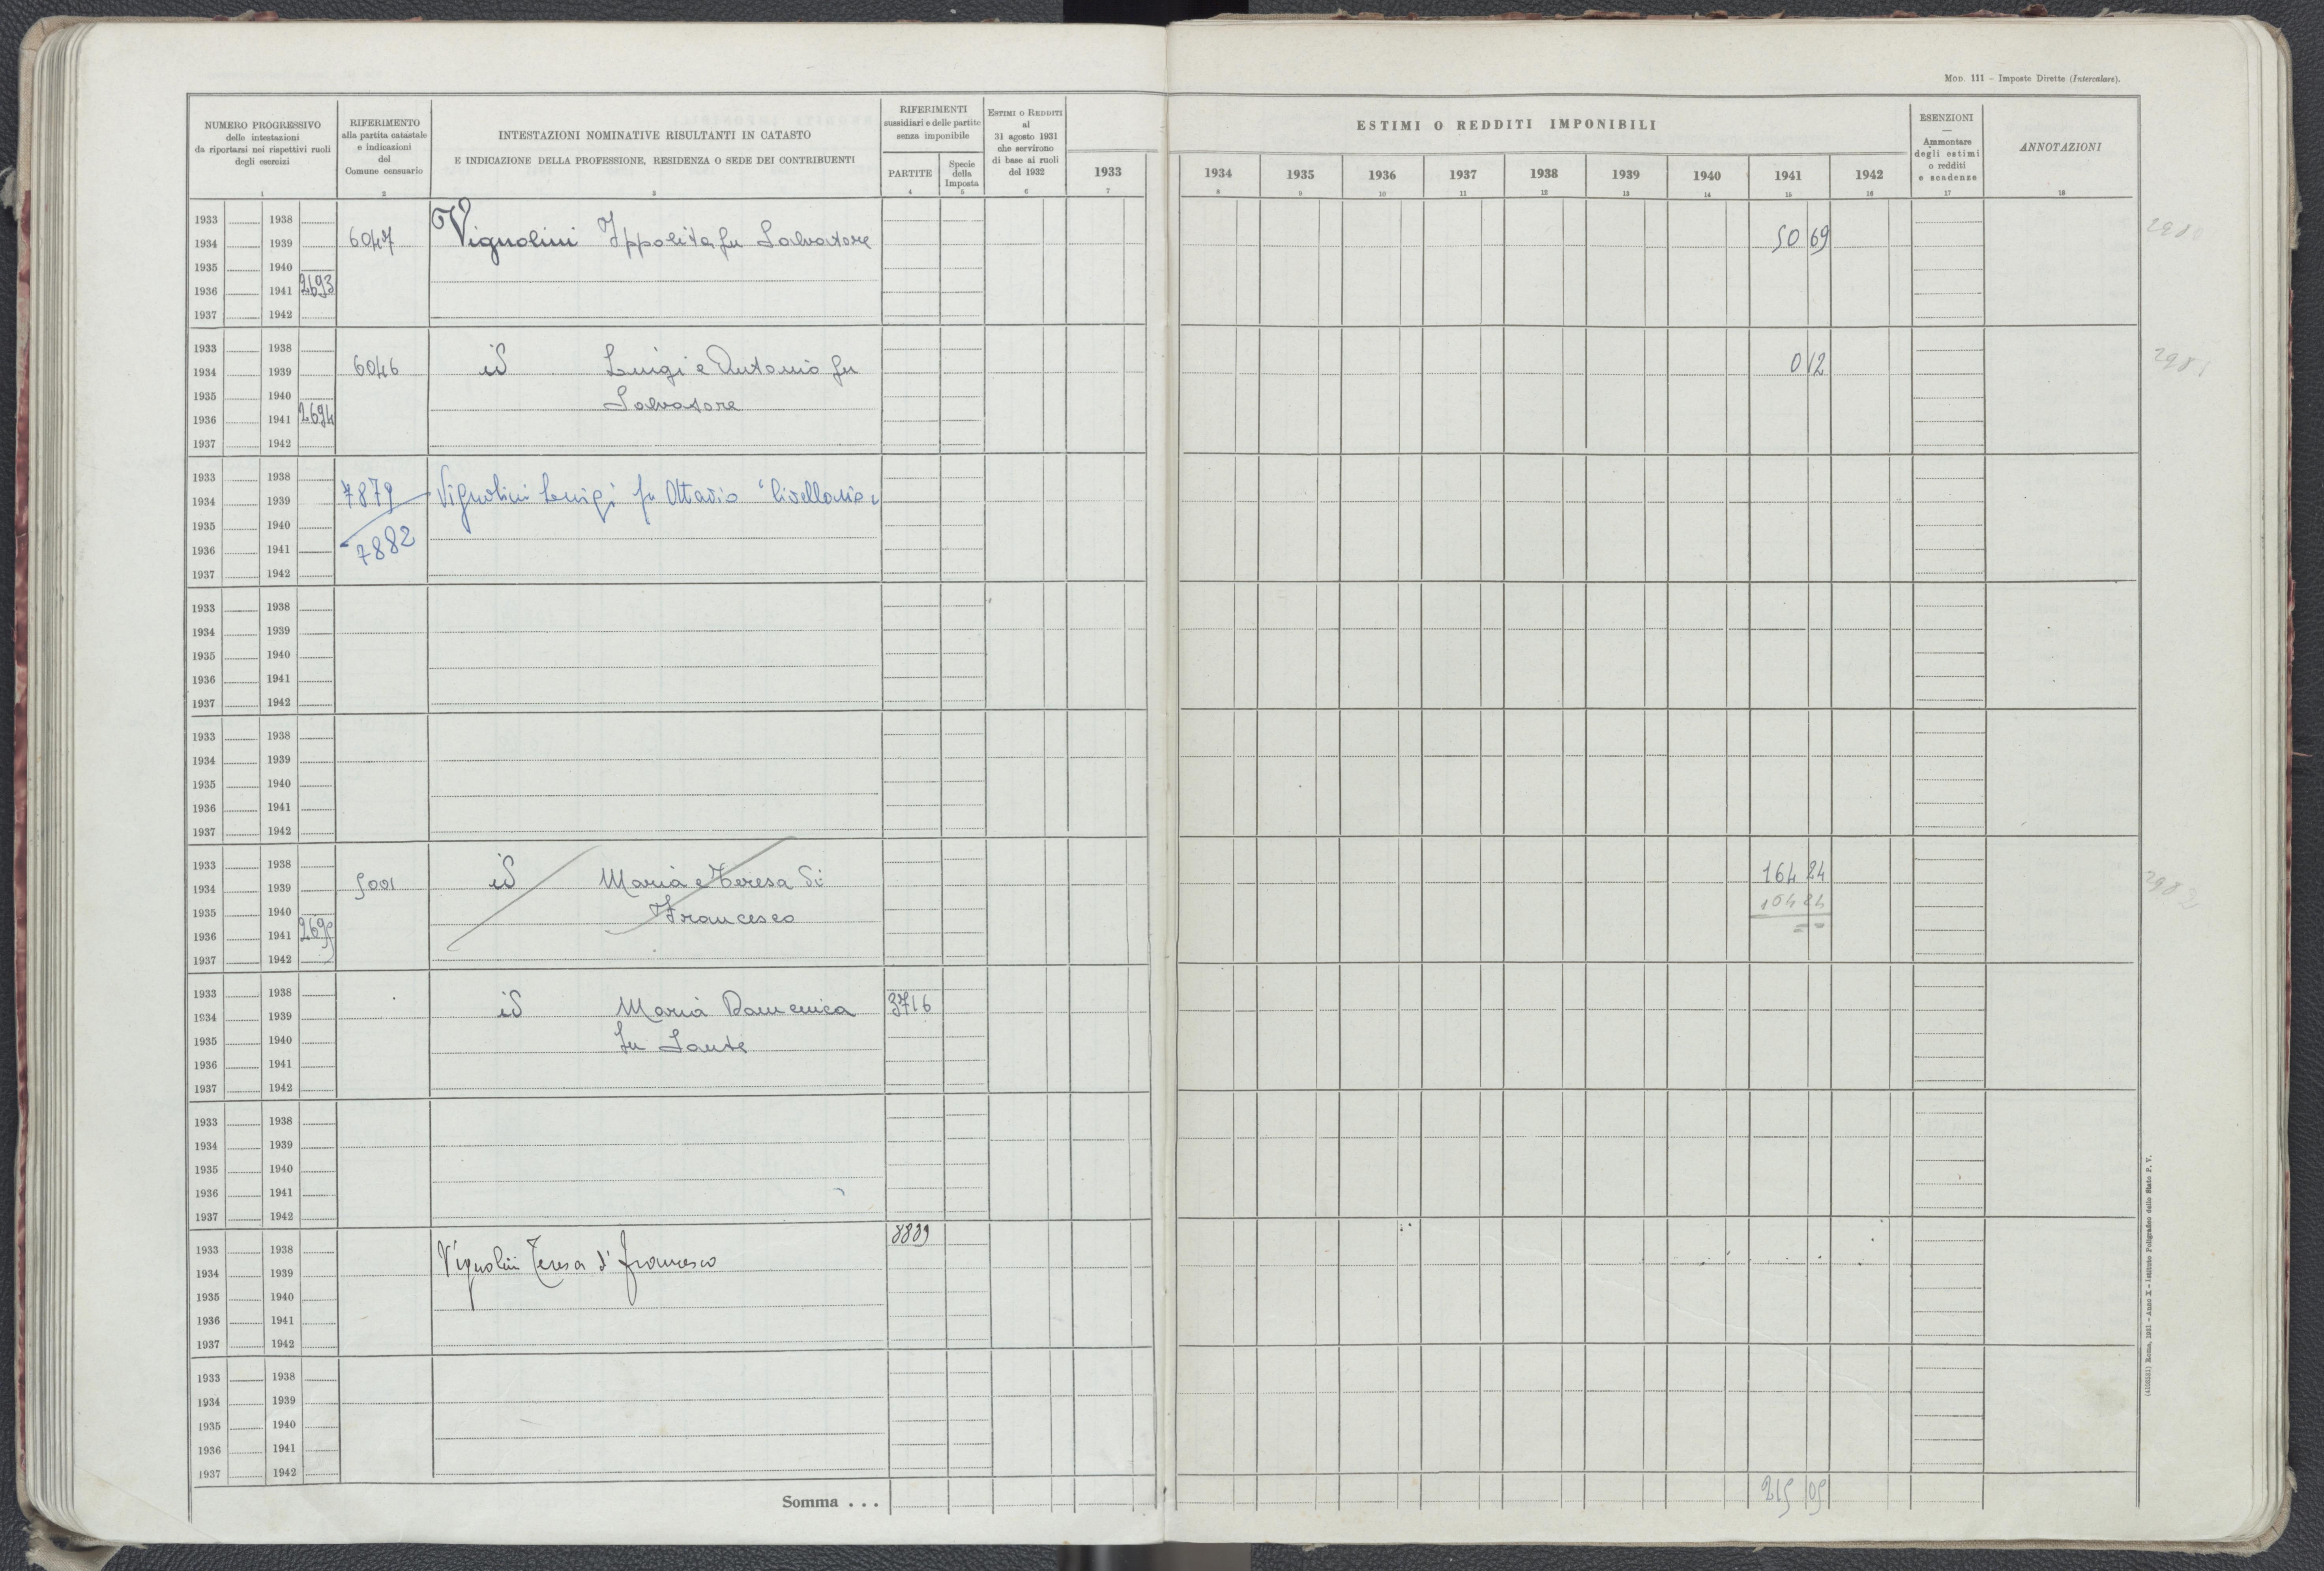 Mod. 111 - Imposte Dirette (Intercalare).
NUMERO PROGRESSIVO
delle intestazioni
da riportarsi nei rispettivi ruoli
degli esercizi
1
RIFERIMENTO
alla partita catastale
e indicazioni
del
Comune censuario
2
INTESTAZIONI NOMINATIVE RISULTANTI IN CATASTO
E INDICAZIONE DELLA PROFESSIONE, RESIDENZA O SEDE DEI CONTRIBUENTI
3
RIFERIMENTI
sussidiari e delle partite
senza imponibile
PARTITE
4
Specie
della
Imposta
5
ESTIMI O REDDITI
al
31 agosto 1931
che servirono
di base ai ruoli
del 1932
6
1933
7
ESTIMI O REDDITI IMPONIBILI
1934 1935 1936 1937 1938 1939 1940 1941 1942
8 9 10 11 12 13 14 15 16
ESENZIONI
—
Ammontare
degli estimi
o redditi
e scadenze
17
ANNOTAZIONI
18
1933 1938
1934 1939 6047 Vignolini Ippolita fu Salvatore 50 69 2980
1935 1940
1936 1941 2693
1937 1942
1933 1938
1934 1939 6046 id Luigi e Antonio fu 0 12 2981
1935 1940 Salvatore
1936 1941 2694
1937 1942
1933 1938
1934 1939 7879 Vignolini Luigi fu Ottavio "livellario"
1935 1940
1936 1941 7882
1937 1942
1933 1938
1934 1939
1935 1940
1936 1941
1937 1942
1933 1938
1934 1939
1935 1940
1936 1941
1937 1942
1933 1938
1934 1939 5001 id Maria e Teresa di 164 24 2982
1935 1940 Francesco 164 24
1936 1941 2695 - -
1937 1942
1933 1938
1934 1939 id Maria Domenica 3716
1935 1940 fu Sante
1936 1941
1937 1942
1933 1938
1934 1939
1935 1940
1936 1941
1937 1942
8839
1933 1938
1934 1939 Vignolini Teresa di Francesco
1935 1940
1936 1941
1937 1942
1933 1938
1934 1939
1935 1940
1936 1941
1937 1942
Somma . . . 215 05
Roma, 1931 - Anno X - Istituto Poligrafico dello Stato P. V.